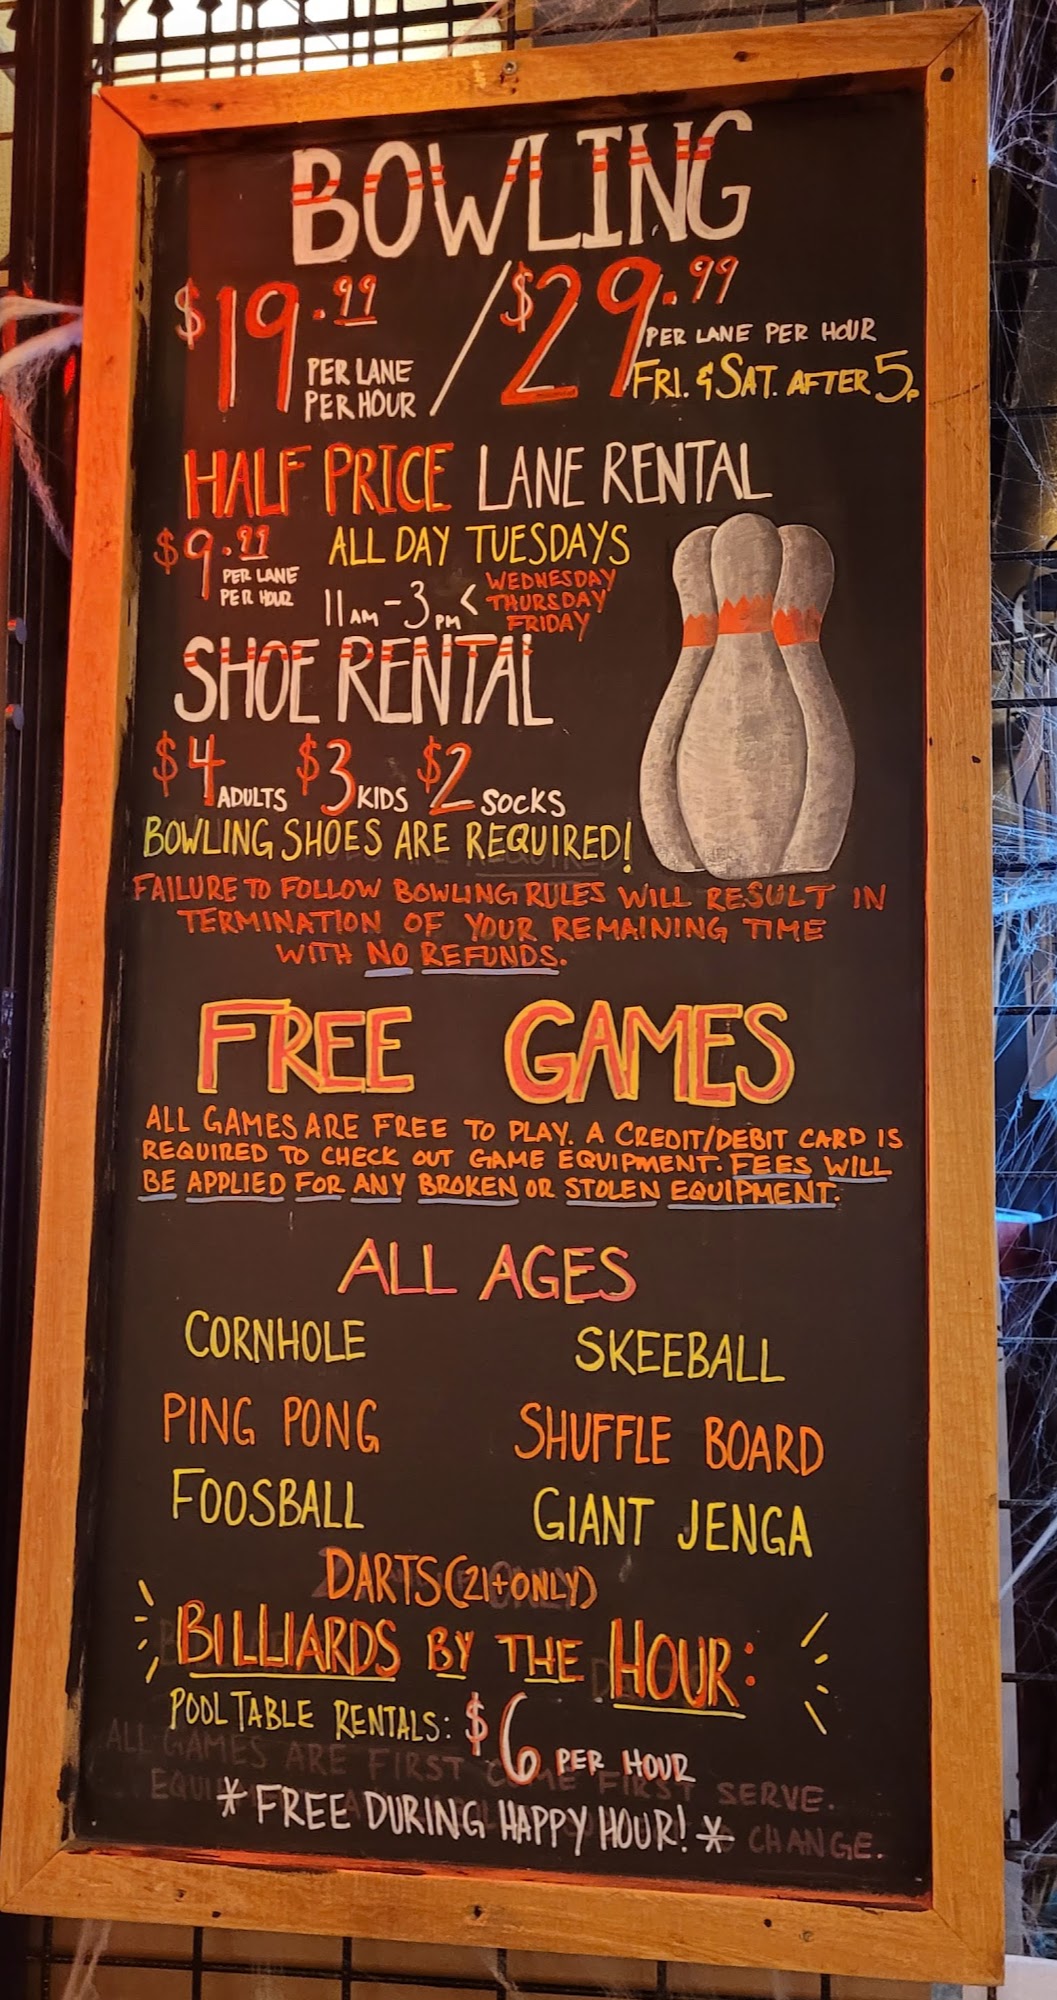 BOWLING
$19.99 PER LANE PER HOUR / $29.99 PER LANE PER HOUR
FRI. & SAT. AFTER 5P
HALF PRICE LANE RENTAL
$9.99 PER LANE PER HOUR
ALL DAY TUESDAYS
11AM-3PM < WEDNESDAY
THURSDAY
FRIDAY
SHOE RENTAL
$4 ADULTS $3 KIDS $2 SOCKS
BOWLING SHOES ARE REQUIRED!
FAILURE TO FOLLOW BOWLING RULES WILL RESULT IN
TERMINATION OF YOUR REMAINING TIME
WITH NO REFUNDS.
FREE GAMES
ALL GAMES ARE FREE TO PLAY. A CREDIT/DEBIT CARD IS
REQUIRED TO CHECK OUT GAME EQUIPMENT. FEES WILL
BE APPLIED FOR ANY BROKEN OR STOLEN EQUIPMENT.
ALL AGES
CORNHOLE SKEEBALL
PING PONG SHUFFLE BOARD
FOOSBALL GIANT JENGA
DARTS (21+ ONLY)
BILLIARDS BY THE HOUR:
POOL TABLE RENTALS: $6 PER HOUR
ALL GAMES ARE FIRST COME FIRST SERVE.
*FREE DURING HAPPY HOUR!*
CHANGE.